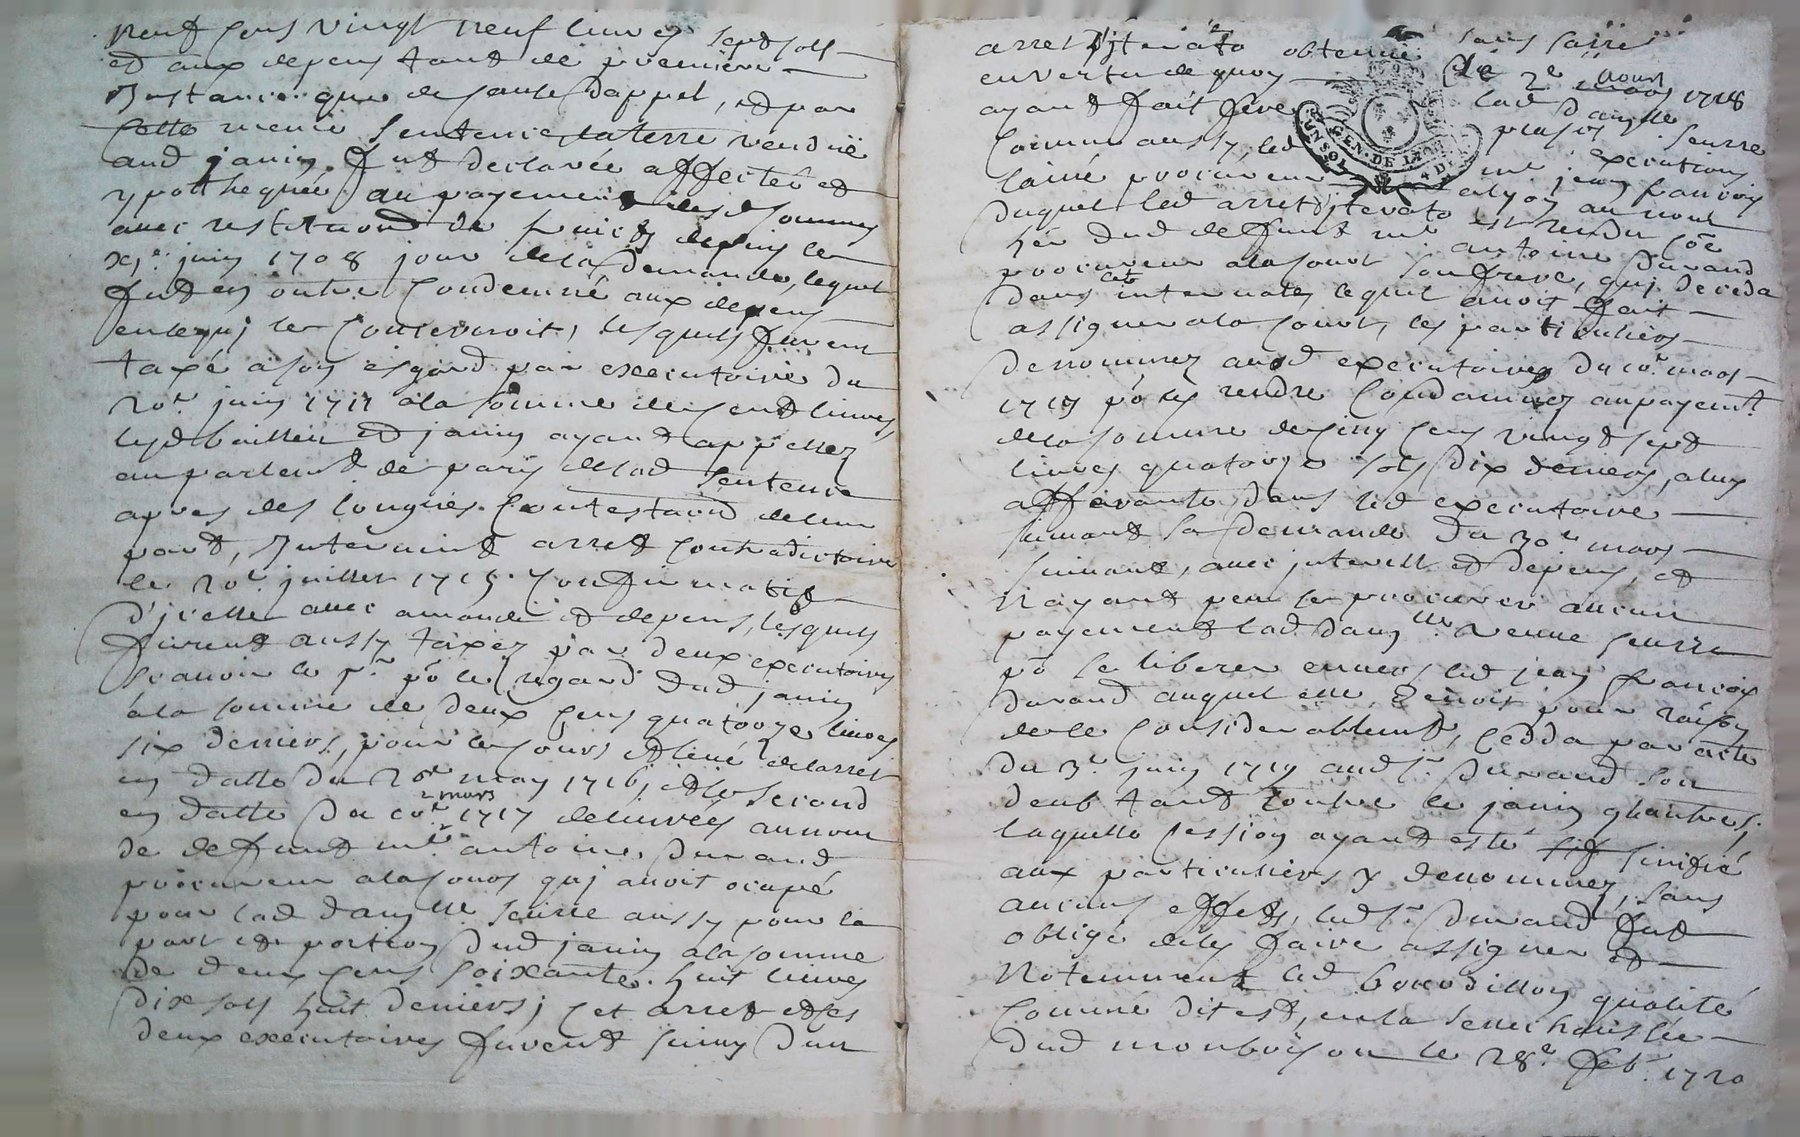 neuf cens vingt neuf livres sept sols
et aux depens tant de premiere
Instance que de cause d'appel, et par
cette meme sentence la terre vendue
aud janin fut declarée affectée et
ypothequée au payement desd sommes
avec restitution de fruicts depuis le
xj.e juin 1708 jour de la demande, lequel
fut en outre condemné aux depens
en ce qui le concernoit, lesquels furent
taxé a son esgard par executoire du
20e juin 1711 a la somme de cent livres,
lesd baillien et janin ayant appellez
au parlemt de paris de lad sentence
apres des longues contestaôns de leur
part, Intervint arrest contradictoire
le 20e juillet 1715 confirmatif
d'icelle avec amande et depens, lesquels
furent aussy taxez par deux executoires
scavoir le pr pô le regard dud janin
a la somme de deux cens quatorze livres
six deniers, pour le cours et levé de larrest
en datte du 20e may 1716, et le second
en datte du 10e 2 mars 1717 delivrés au nom
de deffunt mre antoine Durand
procureur a la cour qui avoit ocupé
pour lad dam.lle seurre aussy pour la
part et portion dud janin a la somme
de deux cens soixante huit livres
dix sols huit deniers; cet arrest et les
deux executoires furent suivy d'un
arrest iterato obtenu sans
en vertu de quoy le 2e aoust 1718
ayant fait lad dam.lle seurre
comme aussy, led execution
laisné procureur jean francois
duquel led arrest iterato est rendu côe
her dud deffunt mre antoine Durand
procureur a la cour son frere, qui deceda
dans cet intervale, lequel avoit fait
assigner a la cour, les particuliers
denommez aud executoires du 10e mars
1717 pô se rendre condamnez au payemt
de la somme de cinq cens vingt sept
livres quatorze sols dix deniers, a luy
afferante dans led executoire
suivant sa demande du 30e mars
suivant, avec interests et depens, et
n'ayant peu se procurer aucun
payement lad dam.lle veuve seurre
pô se liberer envers led jean francois
Durand auquel elle devoit pour raison
de ce considerablemt, cedda par acte
du 3e juin 1719 aud sr Durand son
deub tant contre le janin qu'autres;
laquelle cession ayant esté sinifié
aux particuliers y denommez, sans
aucuns effets, led sr Durand fut
obligé de les faire assigner et
notemment led qualité
comme dit est, en la senechaussée
dud monbrison le 28e feb. 1720